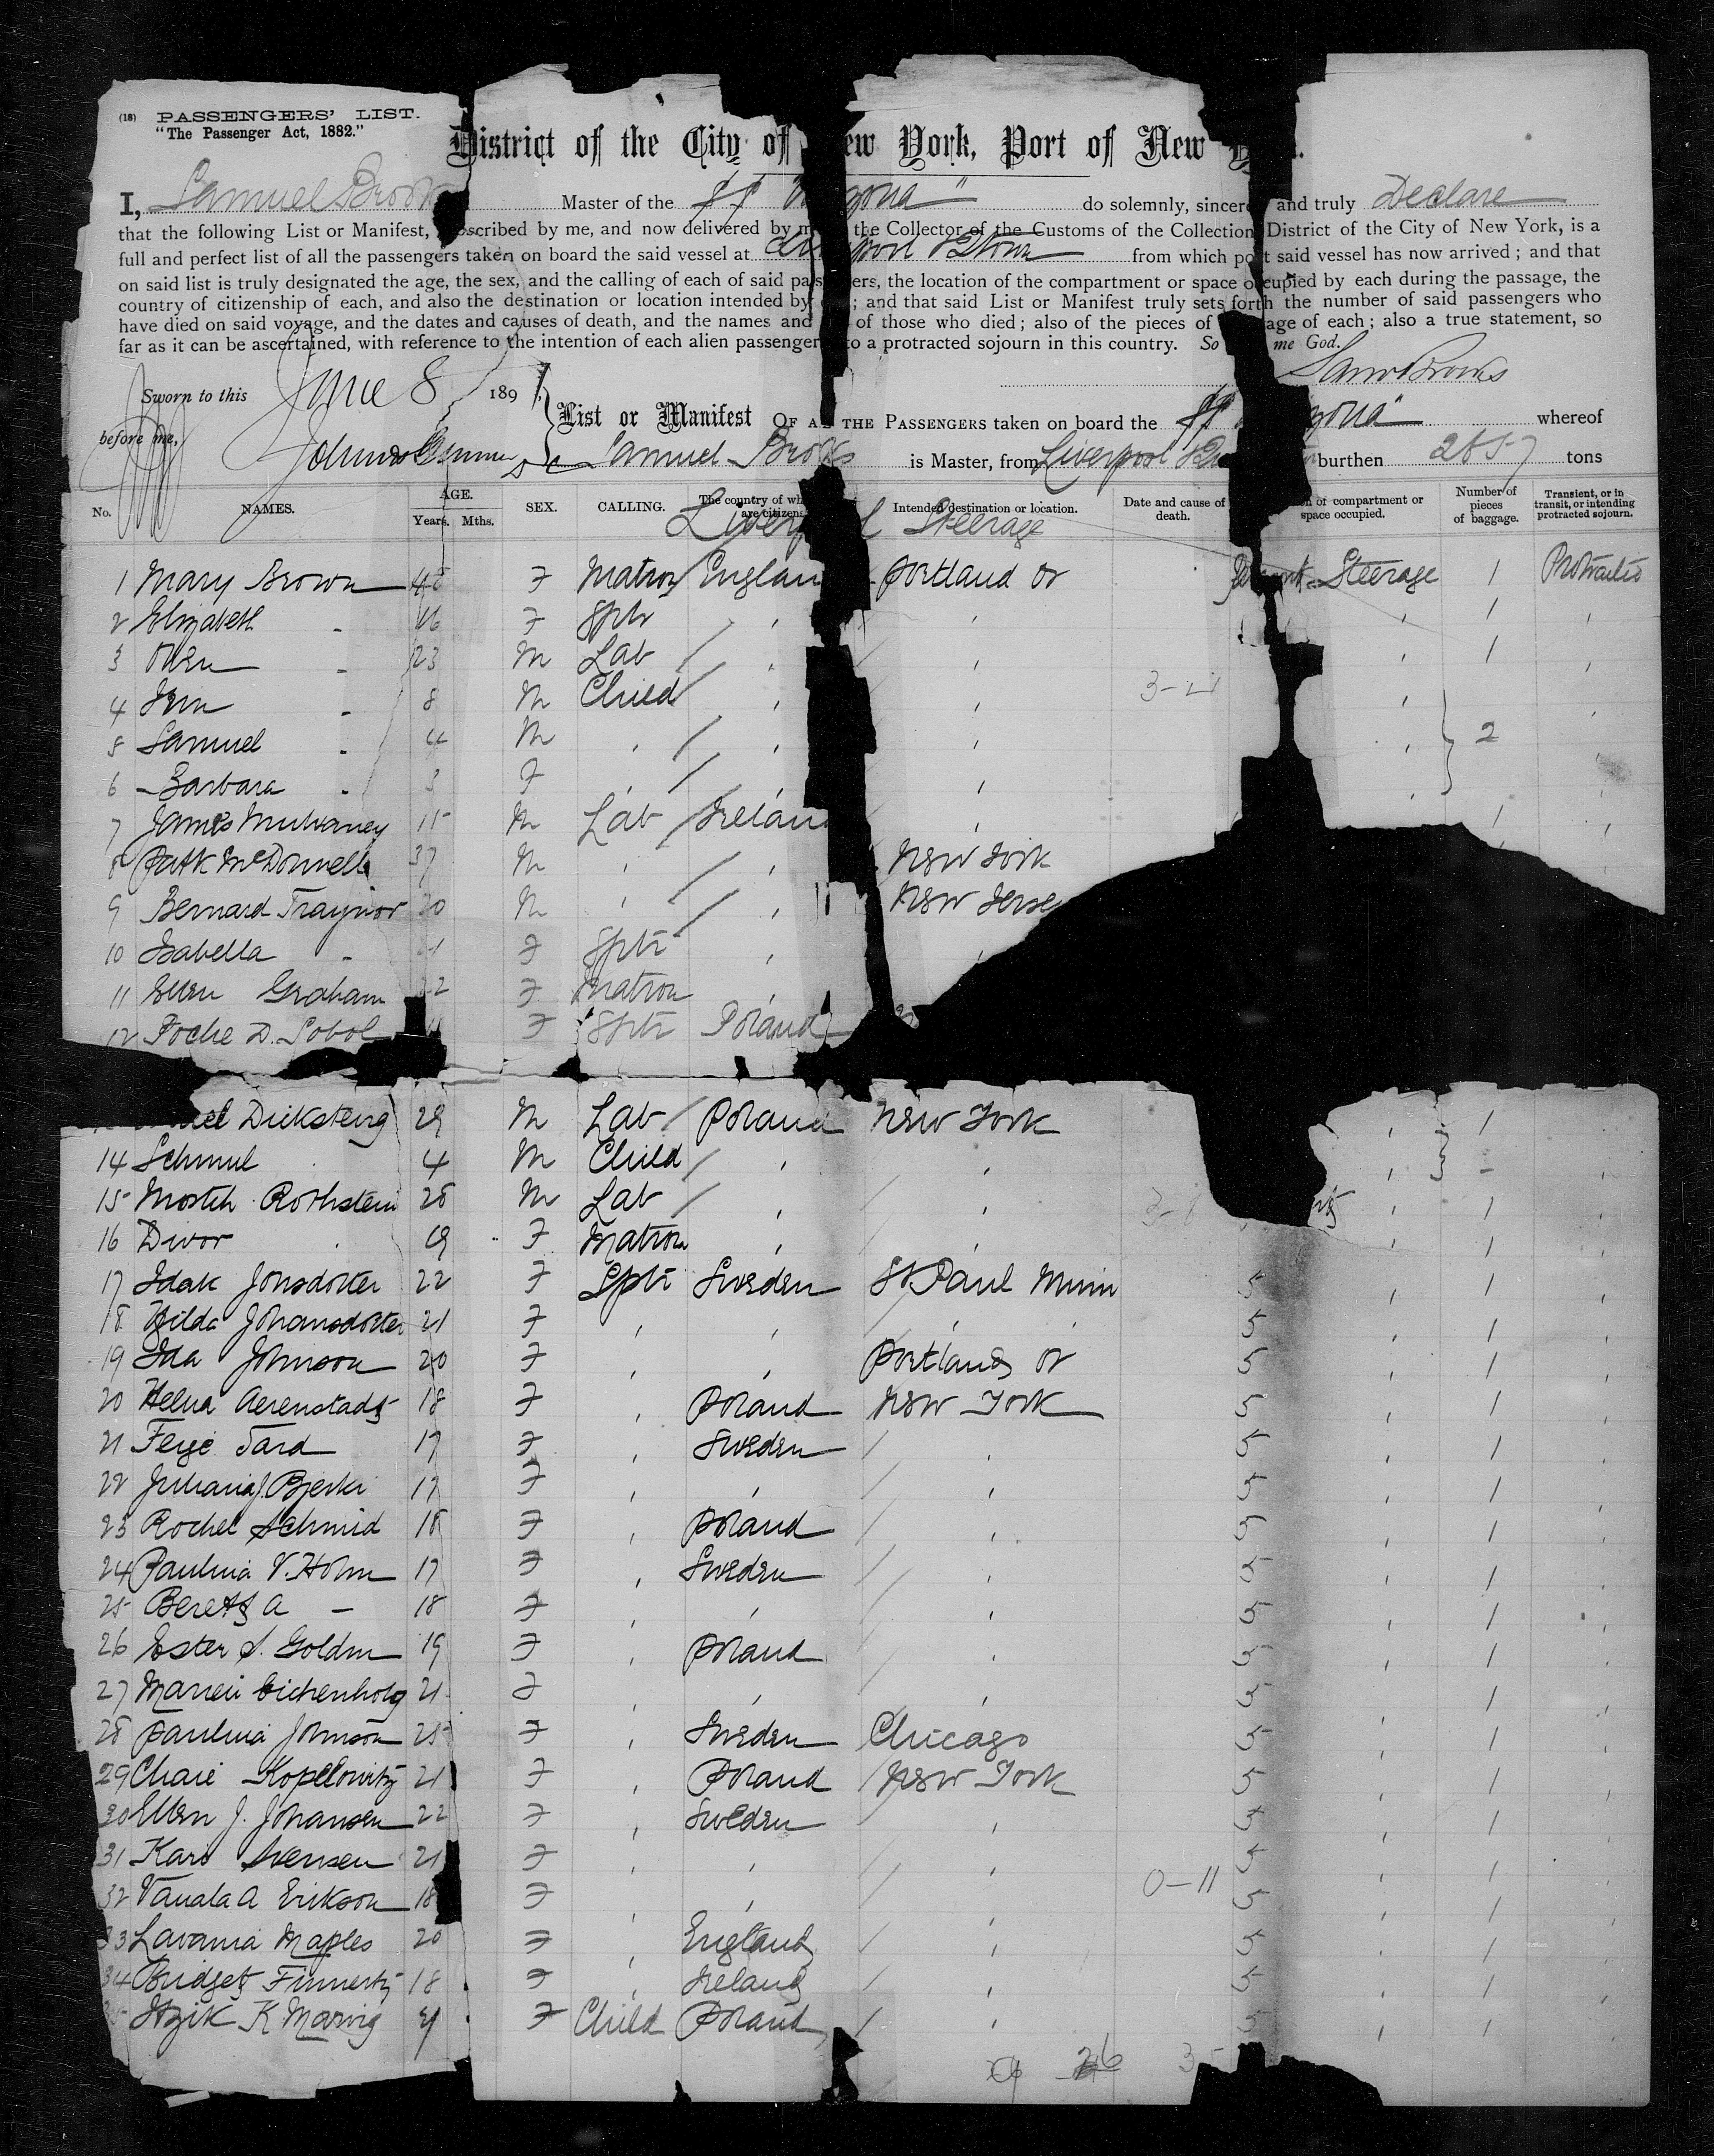 (18) PASSENGERS' LIST.
"The Passenger Act, 1882."
District of the City of New York, Port of New
I, Samuel Brooks Master of the SS " do solemnly, sincerely and truly Declare
that the following List or Manifest, subscribed by me, and now delivered by me the Collector of the Customs of the Collection District of the City of New York, is a
full and perfect list of all the passengers taken on board the said vessel at Liverpool from which port said vessel has now arrived; and that
on said list is truly designated the age, the sex, and the calling of each of said passengers, the location of the compartment or space occupied by each during the passage, the
country of citizenship of each, and also the destination or location intended by ; and that said List or Manifest truly sets forth the number of said passengers who
have died on said voyage, and the dates and causes of death, and the names and of those who died; also of the pieces of age of each; also a true statement, so
far as it can be ascertained, with reference to the intention of each alien passenger to a protracted sojourn in this country. So me God.
Sworn to this June 8 189 Saml Brooks
before me, List or Manifest OF ALL THE PASSENGERS taken on board the SS whereof
Samuel Brooks is Master, from Liverpool burthen tons
No. NAMES. AGE. Years. Mths. SEX. CALLING. The country of wh are citizens Intended destination or location. Date and cause of death. n of compartment or space occupied. Number of pieces of baggage. Transient, or in transit, or intending protracted sojourn.
Liverpool Steerage
1 Mary Brown 45 F Matron England Portland Or Steerage 1 Protracted
2 Elizabeth - 16 F Sptr ' ' ' 1 '
3 Owen - 23 M Lab ' ' ' 1 '
4 - 8 M Child ' ' 3-21 ' '
5 Samuel - 4 M ' ' ' ' 2
6 Barbara - 3 F ' ' ' '
7 James Mulvaney 15 M Lab Ireland ' 1 '
8 Patk McDonnell 37 M ' ' New York
9 Bernard Traynor 20 M ' ' New Jersey
10 Isabella - F Sptr '
11 Ellen Graham F Matron '
12 Foche D. Sobol F Sptr Poland
el Diksteng 29 M Lab Poland New York ' 1
14 Schmul 4 M Child ' ' ' - '
15 Rothstein 28 M Lab ' ' ' 1 '
16 Dwor 19 F Matron ' ' ' 1 '
17 Idak Jonsdotter 22 F Sptr Sweden St Paul Minn 5 ' 1 '
18 Hilda Johansdotter 21 F ' ' ' ' 5 ' 1 '
19 Ida Johnson 20 F ' ' Portland Or 5 ' 1 '
20 Helna Aerenstadt 18 F ' Poland New York 5 ' 1 '
21 Feige Tard 17 F ' Sweden ' 5 ' 1 '
22 Juliana J. Bjerki 17 F ' ' ' 5 ' 1 '
23 Rochel Schmid 18 F ' Poland ' 5 ' 1 '
24 Paulina V. Holm 17 F ' Sweden ' 5 ' 1 '
25 A - 18 F ' ' ' 5 ' 1 '
26 Ester S. Goldm 19 F ' Poland ' 5 ' 1 '
27 Eichenholz 21 F ' ' ' 5 1 '
28 Paulina Johnson 25 F ' Sweden Chicago 5 ' 1 '
29 Chaie Kopelowitz 21 F ' Poland New York 5 ' 1 '
30 Ellen J. Johansen 22 F ' Sweden ' 5 ' 1 '
31 Kari Svensen 21 F ' ' ' 5 ' 1 '
32 A Erikson 18 F ' ' ' 0-11 5 ' 1 '
33 Lavania Maples 20 F ' England ' 5 ' 1 '
34 Bridget Finnerty 18 F ' Ireland ' 5 ' 1 '
35 Itzik K F Child Poland ' 5 ' 1 '
26 35